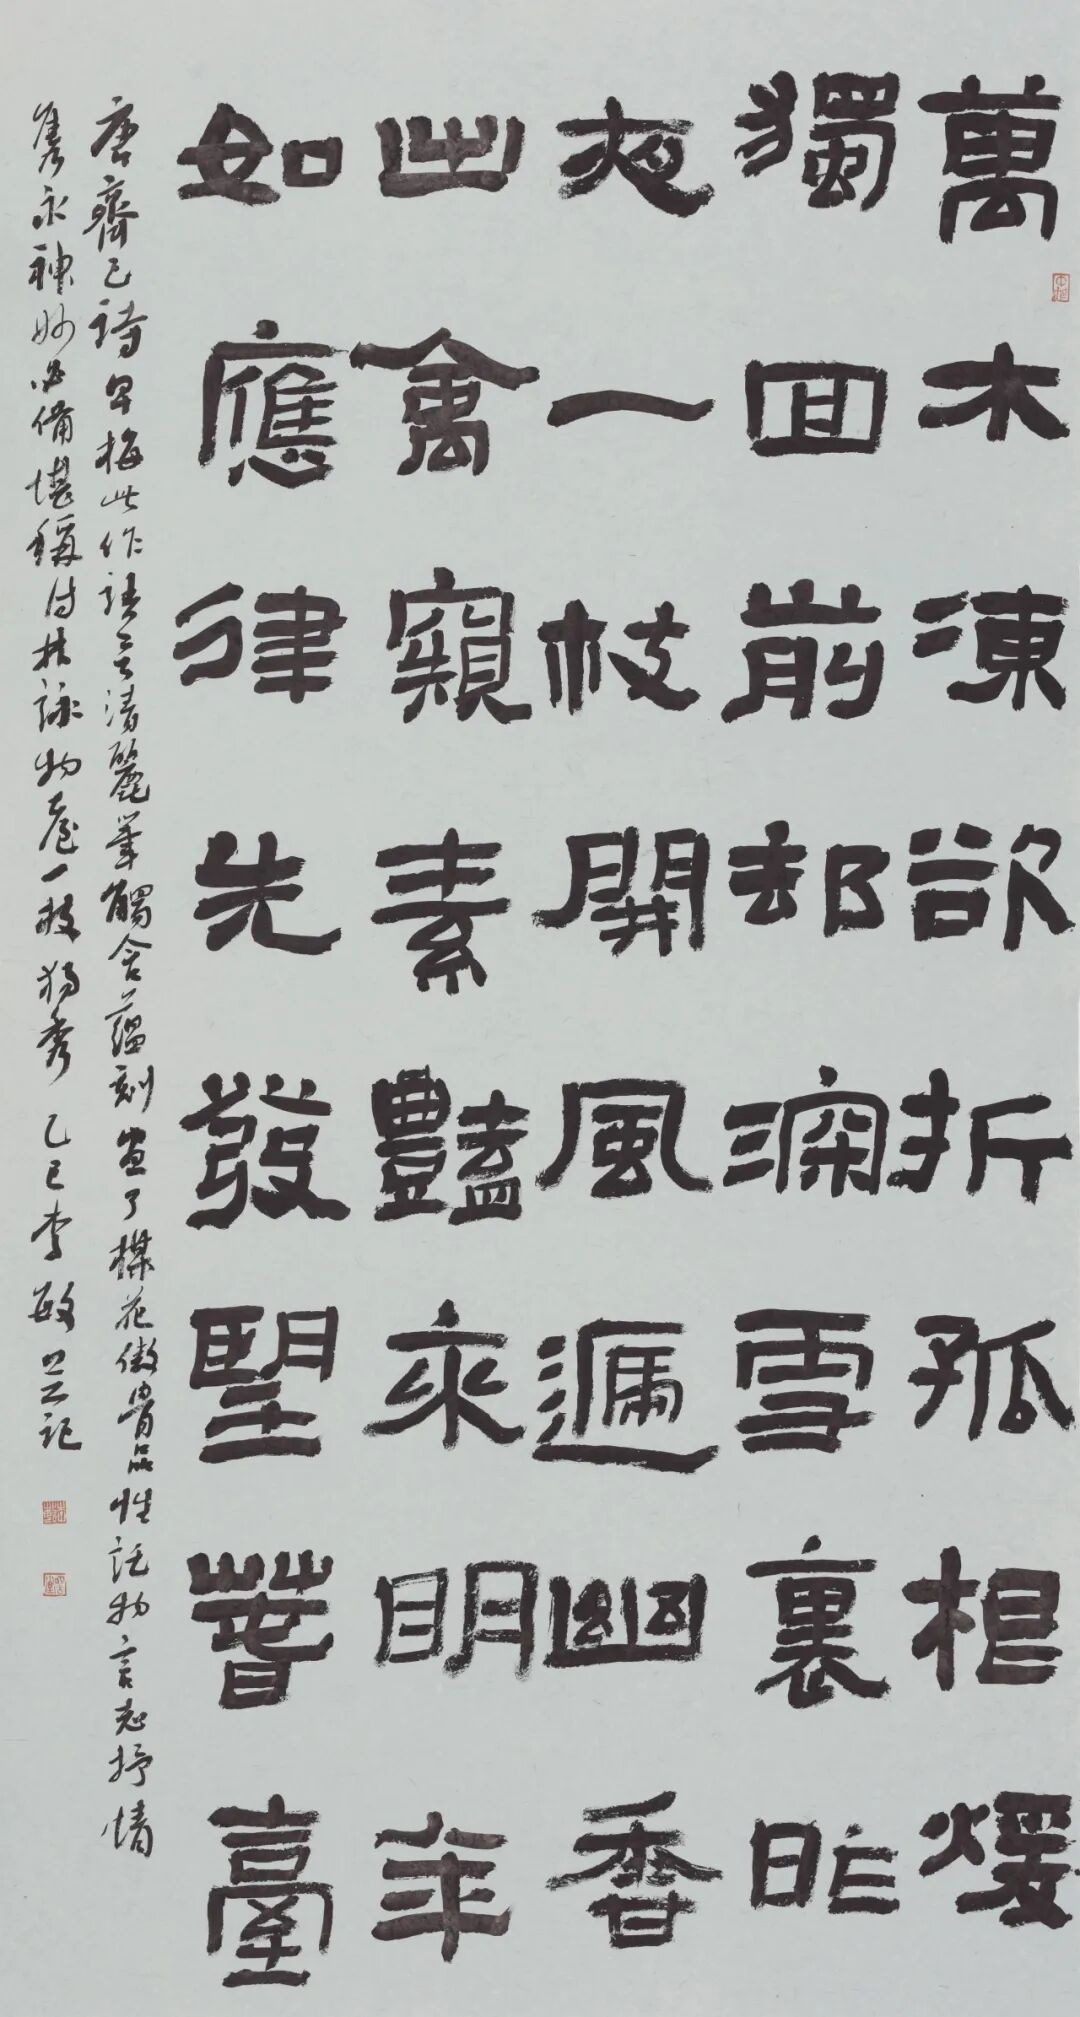 萬木凍欲折孤根煖
獨回前邨深雪裏昨
夜一枝開風遞幽香
出禽窺素艷來明年
如應律先發望春臺
唐齊己詩早梅此作語言清麗筆觸含蘊刻畫了楳花傲骨品性託物言志抒情
雋永神妙必備堪稱詩林詠物老一枝獨秀乙巳李敏芝記